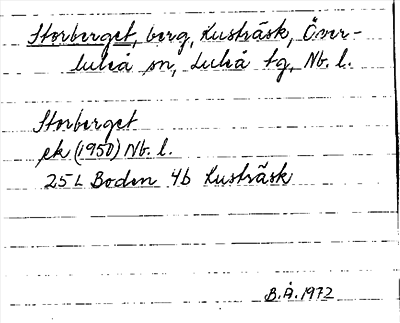 Storberget, berg, Kusträsk, Över-
luleå sn, Luleå tg, Nb. l.
Storberget
ek (1950) Nb. l.
25 L Boden 4b Kusträsk
B.Å. 1972